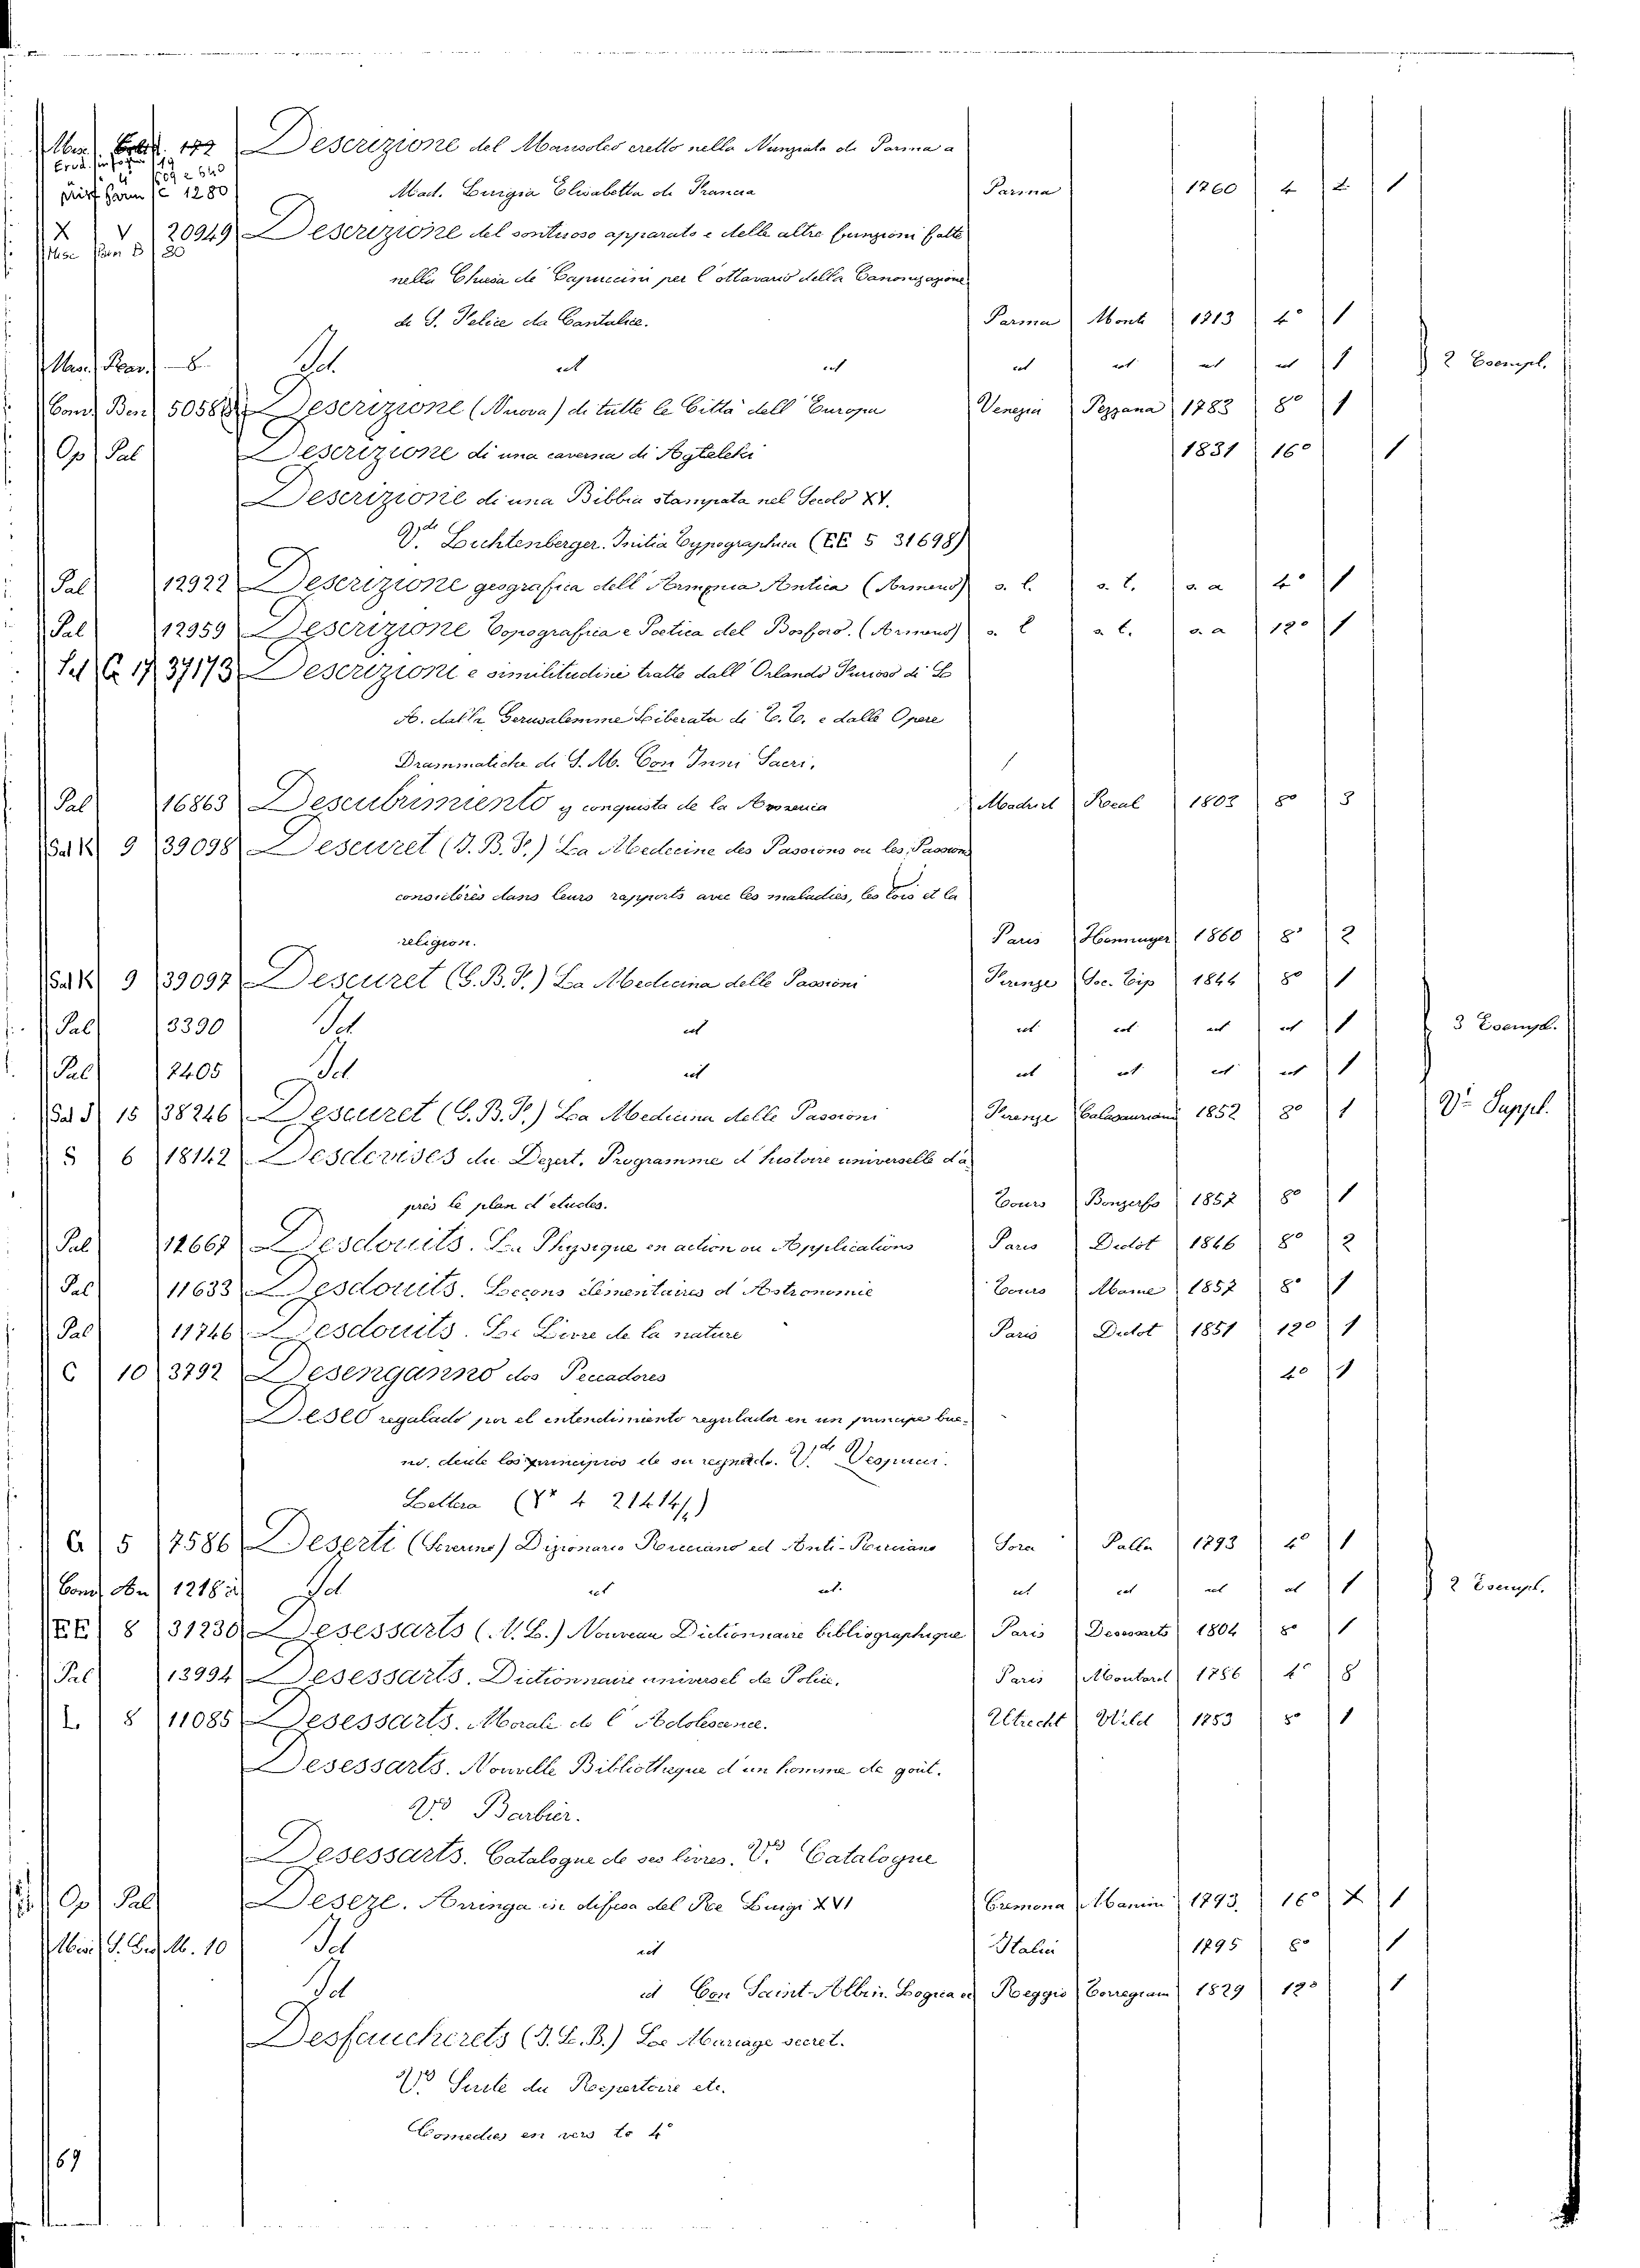 Misc. Erud. 142 Descrizione del Mausoleo eretto nella Nunziata di Parma a
Mad. Burgia Elisabetta di Francia Parma 1760 4 2 1
X V 20949 Descrizione del sontuoso apparato e delle altre funzioni fatte
nella Chiesa de Capuccini per l'ottavario della Canonizazione
di S. Felice da Cantalice. Parma Monti 1713 4° 1
Misc. 8 Id. id id id id id id 1 2 Esempl.
Com. Ben. 5058 Descrizione (Nuova) di tutte le Città dell'Europa Venezia Pezzana 1783 8° 1
Op Pal Descrizione di una caverna di Agtelek 1831 16° 1
Descrizione di una Bibbia stampata nel Secolo XV.
Vde Lichtenberger. Initia Typographica (EE 5 31698)
Pal 12922 Descrizione geografica dell'Armenia Antica (Armeno) s. l. s. t. s. a 4° 1
Pal 12959 Descrizione Topografica e Poetica del Bosforo. (Armeno) s. l s. t. s. a 12° 1
G 17 37173 Descrizioni e similitudini tratte dall'Orlando Furioso di L
A. dalla Gerusalemme Liberata di T. T. e dalle Opere
Drammatiche di S. M. Con Inni Sacri. 1
Pal 16863 Descubrimiento y conquista de la America Madrid Real 1803 8° 3
Sal K 9 39098 Descuret (J. B. F.) La Medecine des Passions ou les Passions
considérés dans leurs rapports avec les maladies, les lois et la
religion. Paris Hennuyer 1860 8° 2
Sal K 9 39097 Descuret (G. B. F.) La Medicina delle Passioni Firenze Soc. Tip 1844 8° 1
Pal 3390 Id id id id id id 1 3 Esempl.
Pal 2405 Id id id id id id 1
Sal J 15 38246 Descuret (G. B. F.) La Medicina delle Passioni Firenze Calasanziana 1852 8° 1 Ve Suppl.
S 6 18142 Desdevises du Dezert. Programme d'histoire universelle d'a
près le plan d'etudes. Tours 1857 8° 1
Pal 11667 Desdouits. La Physique en action ou Applications Paris Didot 1846 8° 2
Pal 11633 Desdouits. Leçons élémentaires d'Astronomie Tours Mame 1857 8° 1
Pal 11746 Desdouits. Le Livre de la nature Paris Didot 1851 12° 1
C 10 3792 Desenganno dos Peccadores 4° 1
Deseo regulado por el entendimiento regulador en un principe bue-
no, desde los principios de su reynado. Vde Vespucci.
Lettera (Y* 4 21414/2)
G 5 7586 Deserti (Severino) Dizionario Ricciano ed Anti-Ricciano Sora Palla 1793 4° 1
Com. An 1218 Id id id. id id id id 1 2 Esempl.
EE 8 31230 Desessarts (N. L.) Nouveau Dictionnaire bibliographique Paris Desessarts 1804 8° 1
Pal 13994 Desessarts. Dictionnaire universel de Police. Paris Moutard 1786 4° 8
L. 8 11085 Desessarts. Morale de l'Adolescence. Utrecht Wild 1783 8° 1
Desessarts. Nouvelle Bibliotheque d'un homme de goût.
Vde Barbier.
Desessarts. Catalogue de ses livres. Vde Catalogue
Op Pal Deseze. Arringa in difesa del Re Luigi XVI Cremona Manini 1793. 16° X 1
Misc. M. 10 Id id Italia 1795 8° 1
Id id Con Saint-Albin. Logica ec Reggio Torregiani 1829 12° 1
Desfaucherets (J. L. B.) Le Mariage secret.
Vde Suite du Repertoire etc.
Comedies en vers to 4°
69